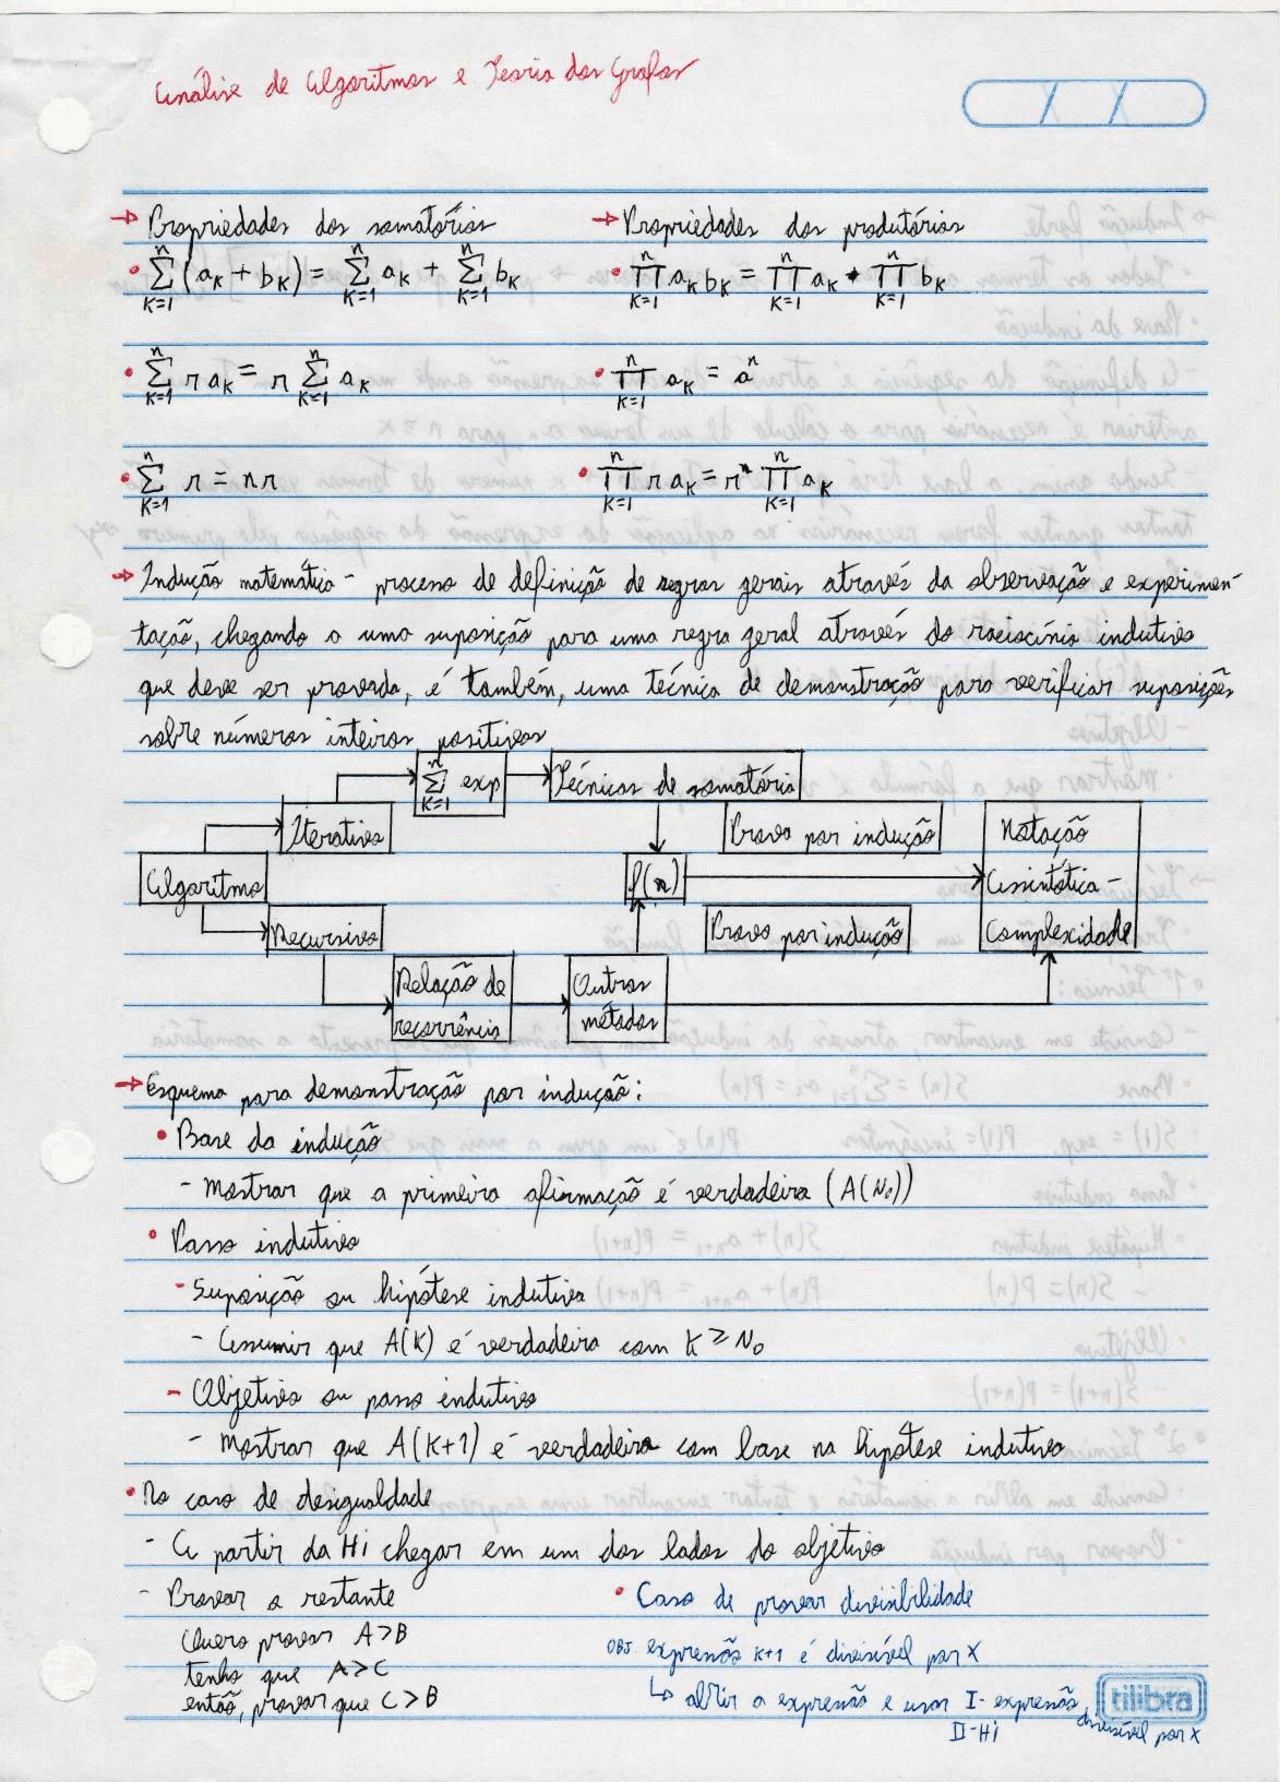 Análise de Algoritmos e Teoria dos Grafos
→ Propriedades dos somatórios
• ∑_{K=1}^{n} (a_K + b_K) = ∑_{K=1}^{n} a_K + ∑_{K=1}^{n} b_K
• ∑_{K=1}^{n} r a_K = r ∑_{K=1}^{n} a_K
• ∑_{K=1}^{n} r = nr
→ Propriedades dos produtórios
• ∏_{K=1}^{n} a_K b_K = ∏_{K=1}^{n} a_K • ∏_{K=1}^{n} b_K
• ∏_{K=1}^{n} a_K = a^n
• ∏_{K=1}^{n} r a_K = r^n ∏_{K=1}^{n} a_K
→ Indução matemática - processo de definição de regras gerais através da observação e experimen-
tação, chegando a uma suposição para uma regra geral através do raciscínio indutivo
que deve ser provada, é também, uma técnica de demonstração para verificar suposições
sobre números inteiros positivos
∑_{K=1}^{n} exp
Técnicas de somatório
Iterativo
Prova por indução
Notação
Assintótica -
Complexidade
Algoritmo
f(n)
Recursivo
Prova por indução
Relação de
recorrência
Outros
métodos
→ Esquema para demonstração por indução:
• Base da indução
- Mostrar que a primeira afirmação é verdadeira (A(N₀))
• Passo indutivo
- Suposição ou hipótese indutiva
- Assumir que A(K) é verdadeira com K ≥ N₀
- Objetivo ou passo indutivo
- Mostrar que A(K+1) é verdadeira com base na hipótese indutiva
• No caso de desigualdade
- A partir da Hi chegar em um dos lados do objetivo
- Provar o restante
Quero provar A>B
tenho que A>C
então, provar que C>B
• Caso de provar divisibilidade
OBJ. expressão K+1 é divisível por X
↳ abrir a expressão e usar I- expressão
divisível por X
II-Hi
tilibra